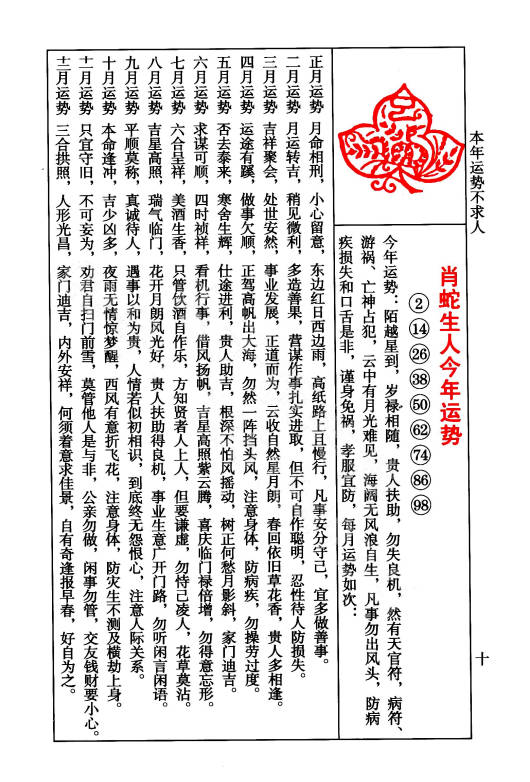 本年运势不求人
肖蛇生人今年运势
2 14 26 38 50 62 74 86 98
今年运势：陌越星到，岁禄相随，贵人扶助，勿失良机，然有天官符，病符、
游祸、亡神占犯，云中有月光难见，海阔无风浪自生，凡事勿出风头，防病
疾损失和口舌是非，谨身免祸，孝服宜防，每月运势如次：
正月运势 月命相刑，小心留意，东边红日西边雨，高纸路上且慢行，凡事安分守己，宜多做善事。
二月运势 月运转吉，稍见微利，多造善果，营谋作事扎实进取，但不可自作聪明，忍性待人防损失。
三月运势 吉祥聚会，处世安然，事业发展，正道而为，云收自然星月朗，春回依旧草花香，贵人多相逢。
四月运势 运途有蹊，做事欠顺，正驾高帆出大海，勿然一阵挡头风，注意身体，防病疾，勿操劳过度。
五月运势 否去泰来，寒舍生辉，仕途进利，贵人助吉，根深不怕风摇动，树正何愁月影斜，家门迪吉。
六月运势 求谋可顺，四时祯祥，看机行事，借风扬帆，吉星高照紫云腾，喜庆临门禄倍增，勿得意忘形。
七月运势 六合呈祥，美酒生香，只管饮酒自作乐，方知贤者人上人，但要谦虚，勿恃己凌人，花草莫沾。
八月运势 吉星高照，瑞气临门，花开月朗风光好，贵人扶助得良机，事业生意广开门路，勿听闲言闲语。
九月运势 平顺莫称，真诚待人，遇事以和为贵，人情若似初相识，到底终无怨恨心，注意人际关系。
十月运势 本命逢冲，吉少凶多，夜雨无情惊梦醒，西风有意折飞花，注意身体，防灾生不测及横劫上身。
十一月运势 只宜守旧，不可妄为，劝君自扫门前雪，莫管他人是与非，公亲勿做，闲事勿管，交友钱财要小心。
十二月运势 三合拱照，人形光昌，家门迪吉，内外安祥，何须着意求佳景，自有奇逢报早春，好自为之。
十